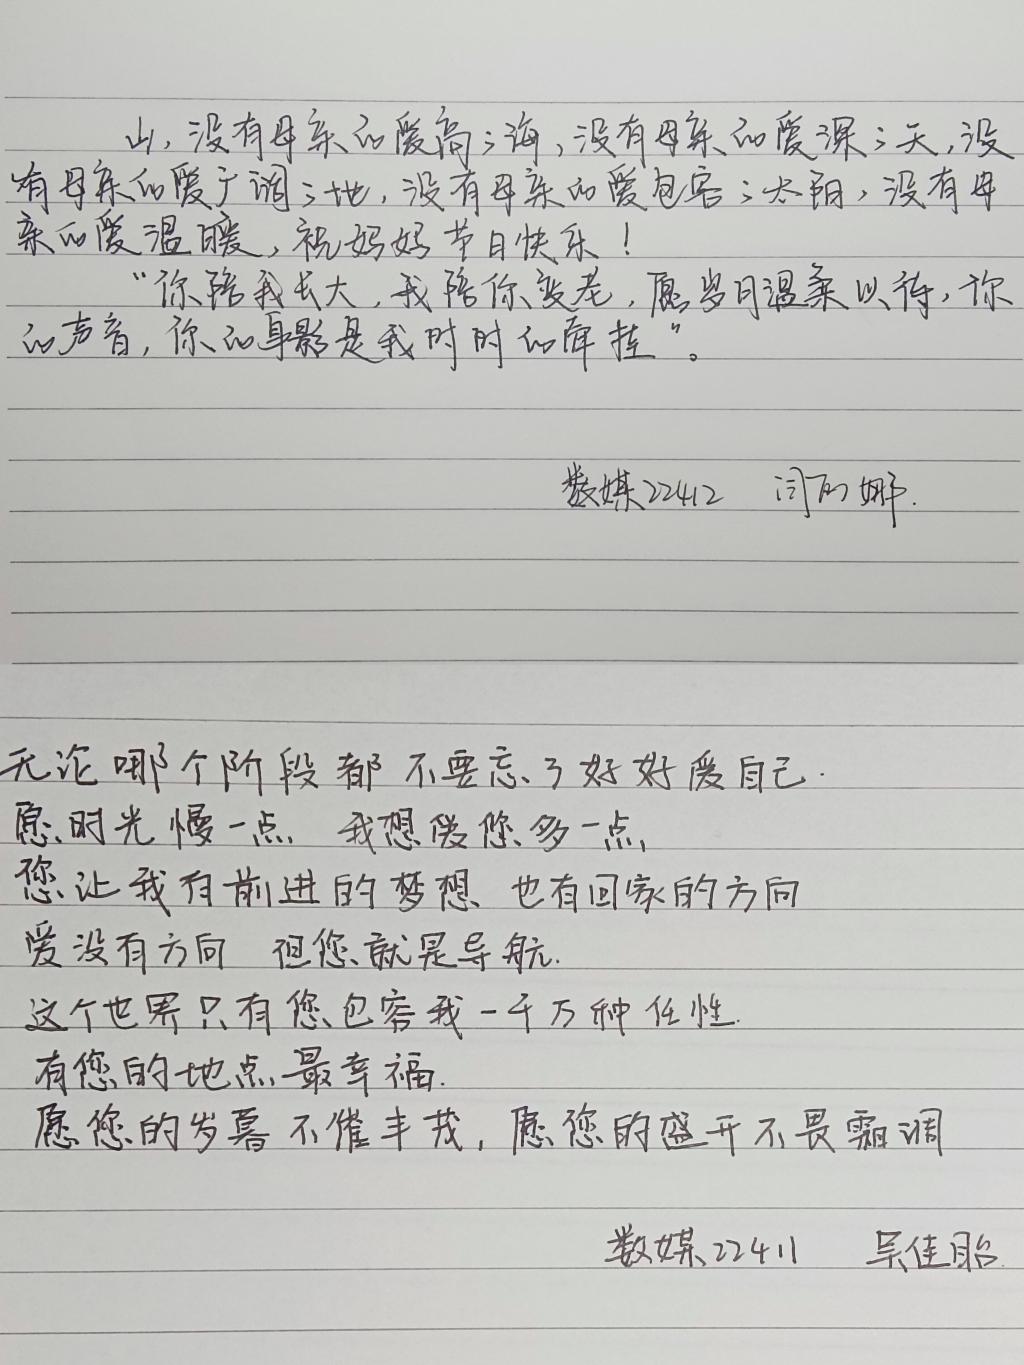 山，没有母亲的爱高；海，没有母亲的爱深；天，没
有母亲的爱广阔；地，没有母亲的爱包容；太阳，没有母
亲的爱温暖，祝妈妈节日快乐！
“你陪我长大，我陪你变老，愿岁月温柔以待，你
的声音，你的身影是我时时的牵挂”。
数媒22412 闫丽娜.
无论哪个阶段都不要忘了好好爱自己.
愿时光慢一点 我想爱您多一点
您让我有前进的梦想 也有回家的方向
爱没有方向 但您就是导航.
这个世界只有您包容我一千万种任性.
有您的地点最幸福.
愿您的岁暮不催丰茂，愿您的盛开不畏霜凋
数媒22411 吴佳昭